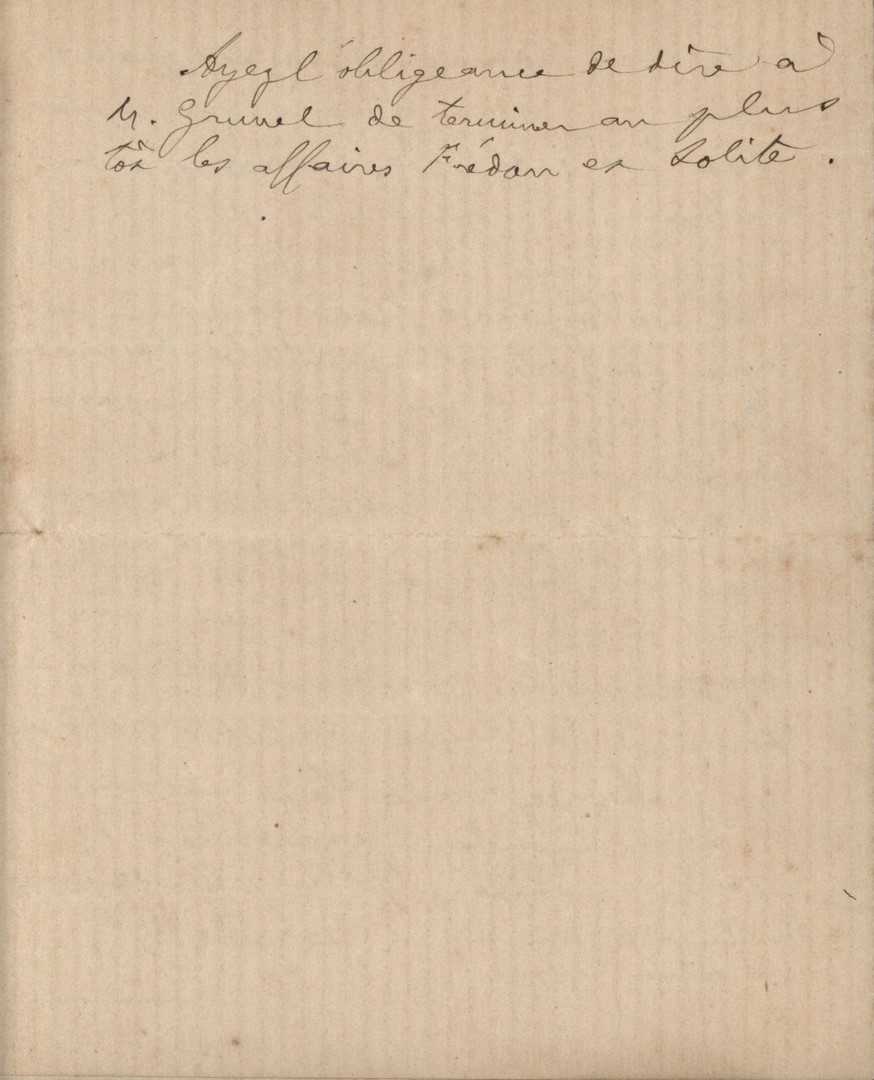 Ayez l'obligeance de dire à
M. Grunel de terminer au plus
tôt les affaires Frédou et Solite.